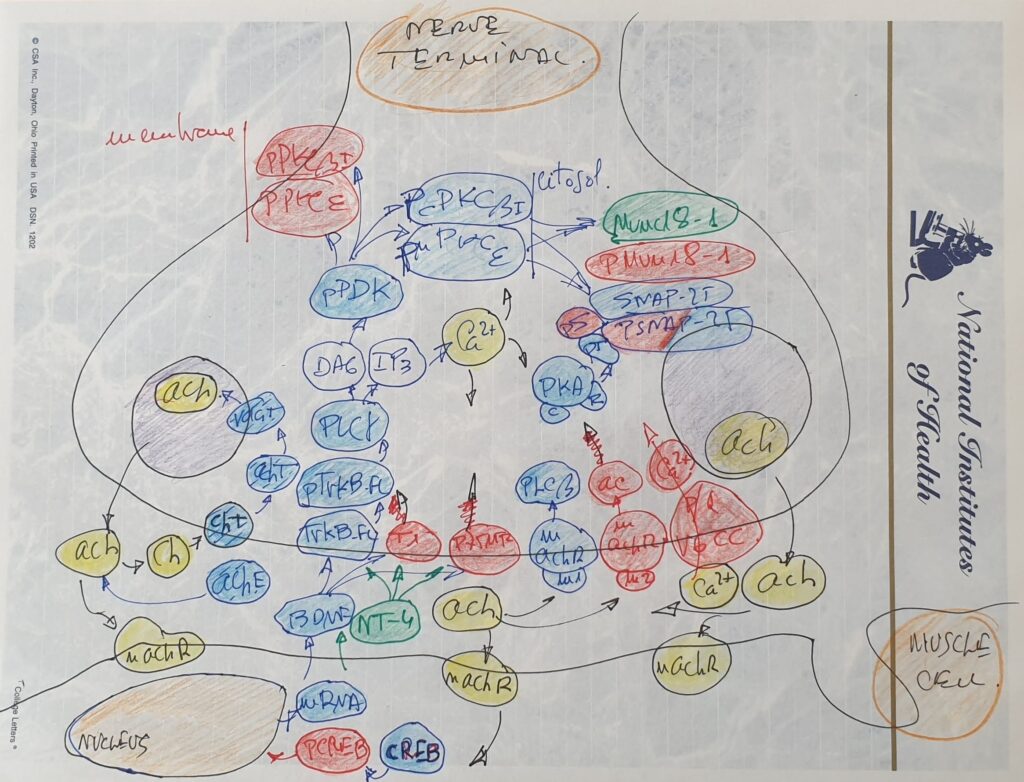 NERVE
TERMINAL.
membrane
pPKCβI
pPKCε
PcPKCβI
citosol.
Munc18-1
PMunc18-1
SNAP-25
PSNAP-25
pPDK
Ca²⁺
DAG
IP3
PKA
C
R
ach
PLCγ
ach
achT
pTrKB.FL
PLCβ
ac
Ca²⁺
cht
TrKB.FL
T1
P75NTR
m
achR
M1
m
achR
M2
VGCC
ach
ch
achE
BDNF
NT-4
ach
Ca²⁺
ach
nachR
nachR
nachR
MUSCLE
CELL.
mRNA
NUCLEUS
PCREB
CREB
National Institutes
of Health
© CSA Inc., Dayton, Ohio Printed in USA DSN. 1202
"College Letters"®